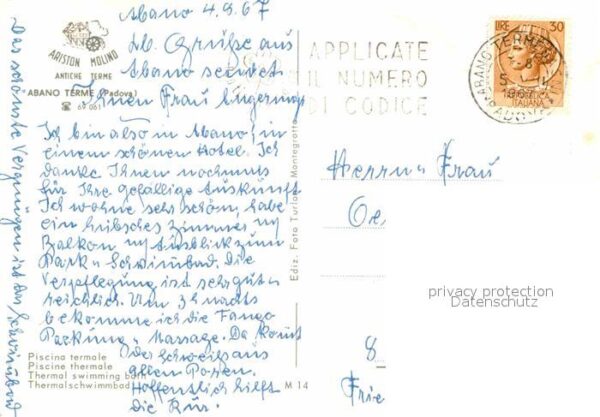 Abano 4.9.67
ARISTON MOLINO
ANTICHE TERME
ABANO TERME (Padova)
☎ 69 061
Lb. Grüße aus
Abano sendet
Ihnen Frau
Ich bin also in Abano, in
einem schönen Hotel. Ich
danke Ihnen nochmals
für Ihre gefällige Auskunft
Ich wohne sehr schön, habe
ein hübsches Zimmer m/
Balkon m/ Ausblick zum
Park u. Schwimbad. Die
Verpflegung ist sehr gut u
reichlich. Um 3 h nachts
bekomme ich die Fango
Packung u Massage. Da komt
der Schweiss aus
allen Poren.
Hoffentlich hilft
die Kur.
Das schönste Vergnügen ist das Schwimbad
Piscina termale
Piscine thermale
Thermal swimming bath
Thermalschwimmbad
M 14
Ediz. Foto Turismo Montegrotto
APPLICATE
IL NUMERO
DI CODICE
LIRE 30
ITALIANA
ABANO TERME
1967
Herrn u Frau
Oe
8
Frie
privacy protection
Datenschutz